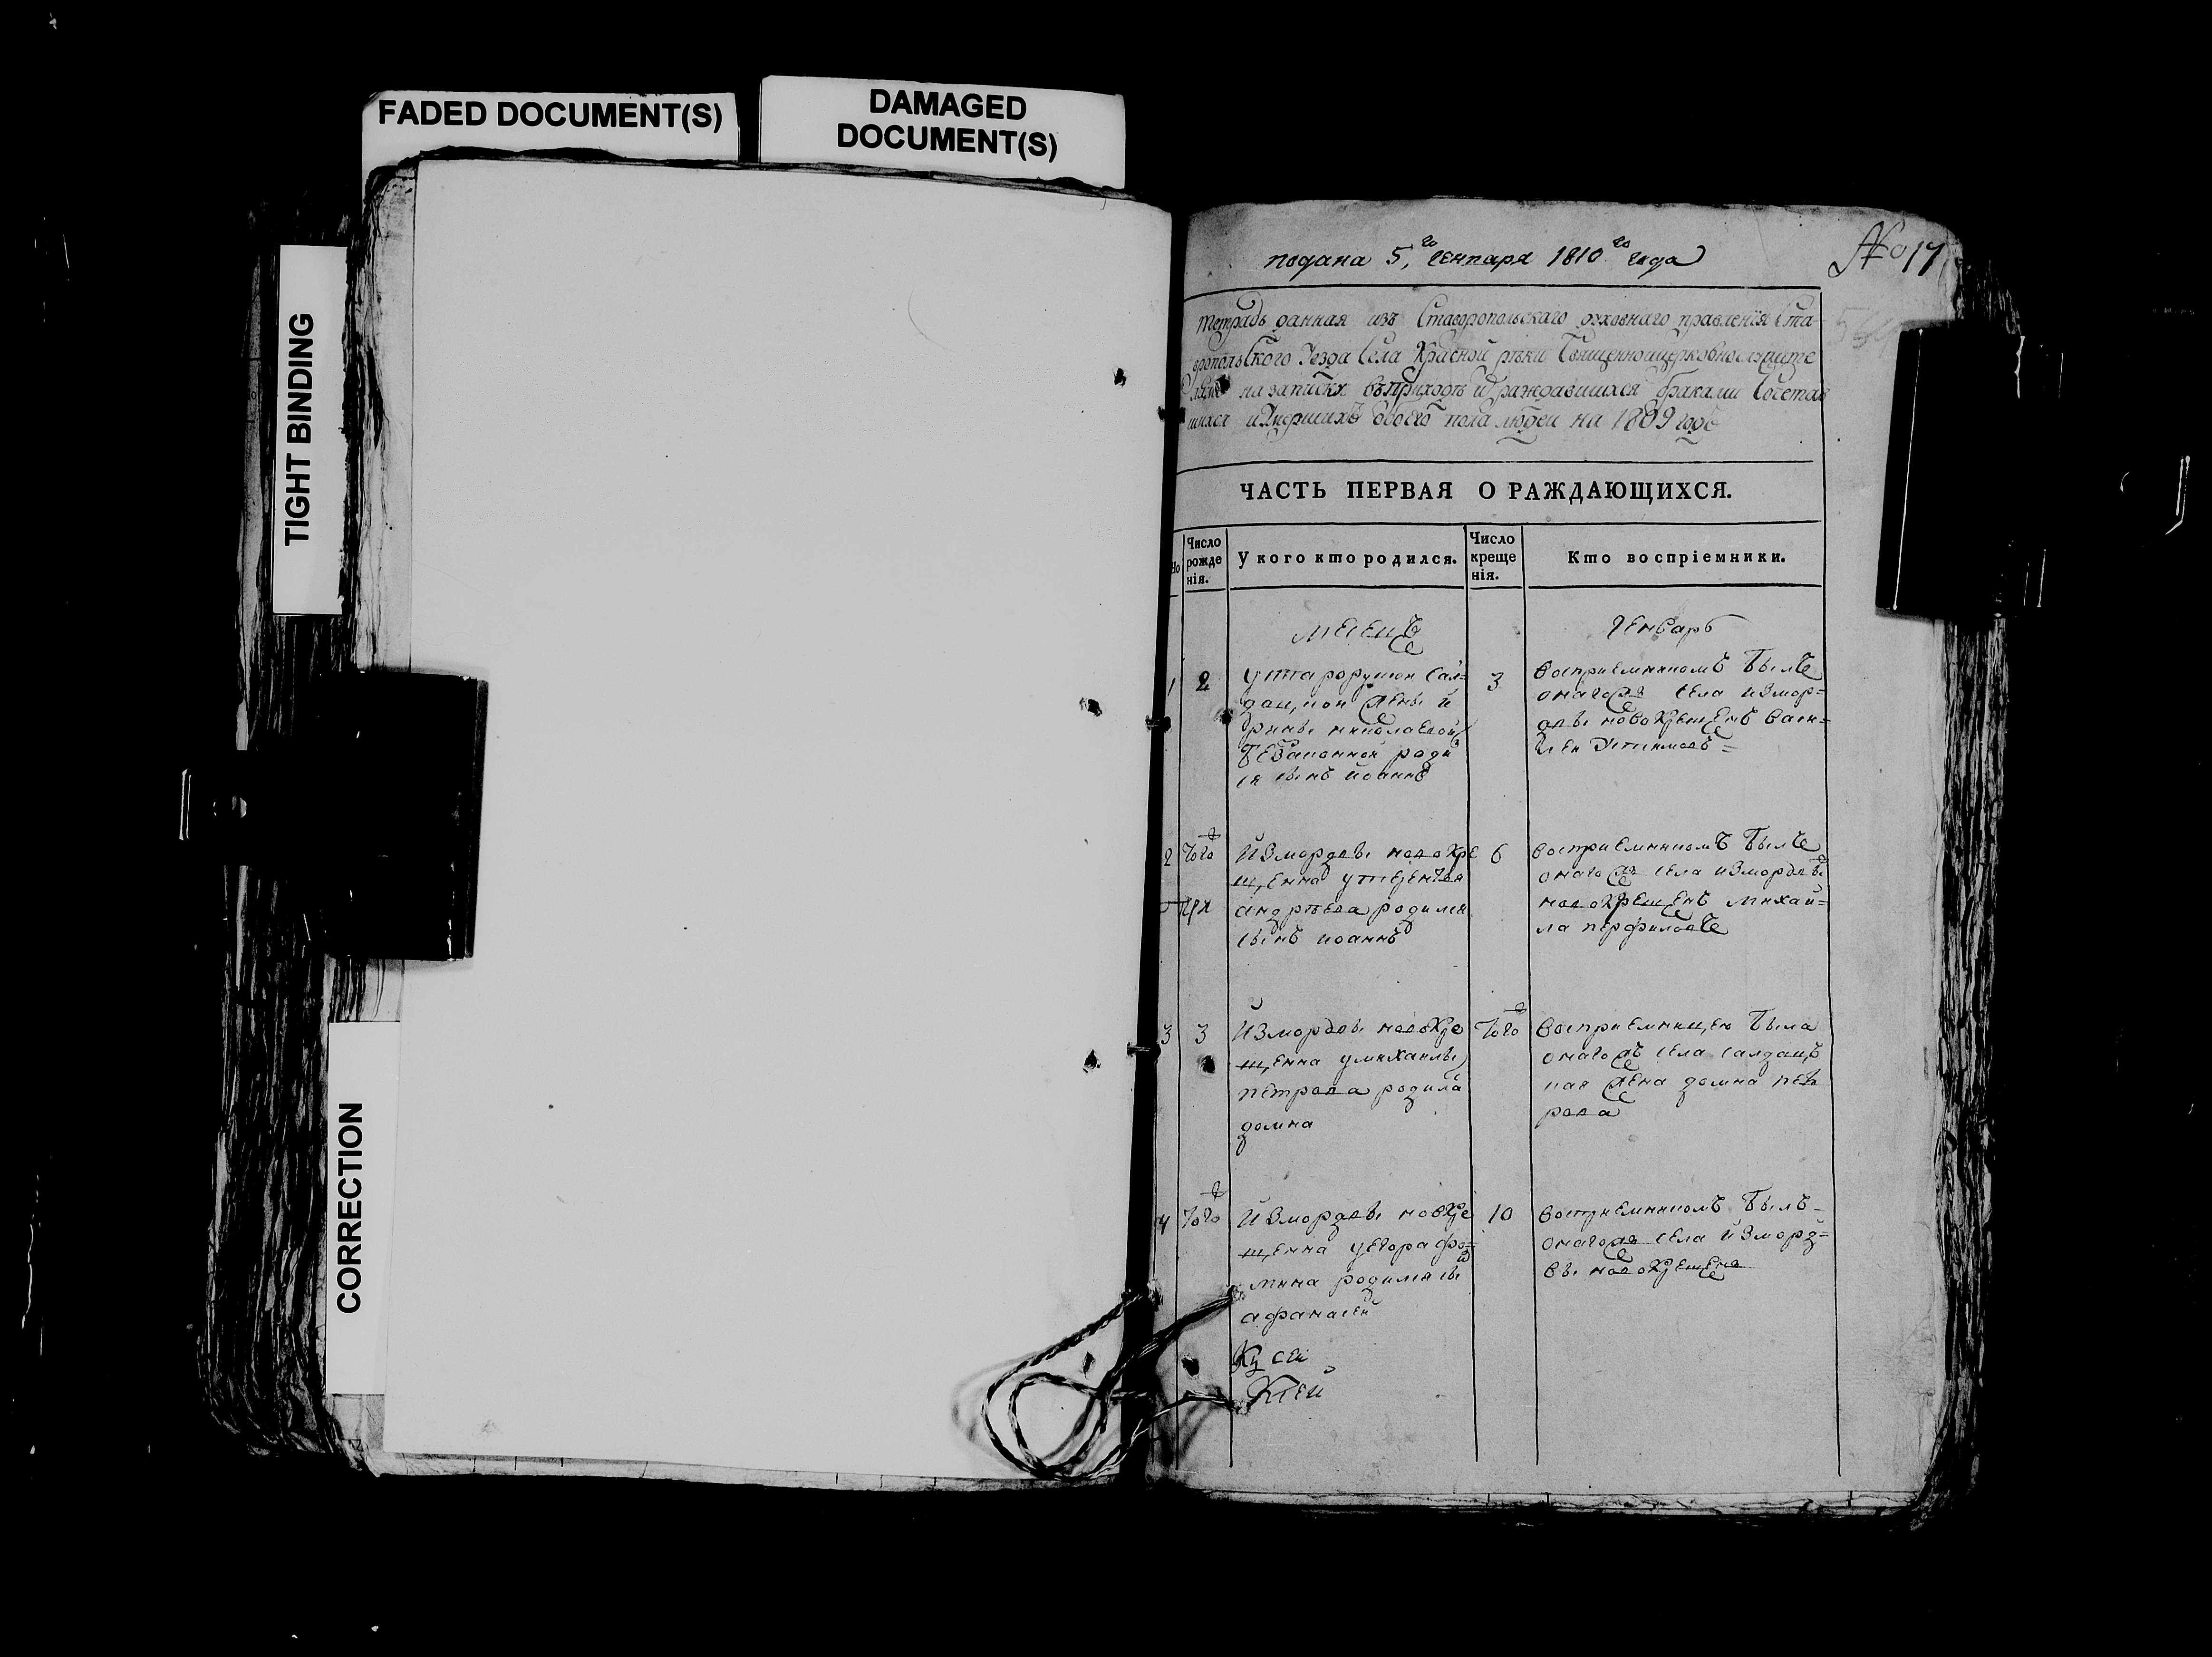 FADED DOCUMENT(S)
DAMAGED
DOCUMENT(S)
TIGHT BINDING
CORRECTION
подана 5,го генваря 1810го года
№ 17
Тетрадь данная изъ Ставропольскаго духовнаго правленія Ста-
вропольского уезда села Красной реки священноцерковнослужите
лямъ на записку въ приходе ихъ раждавшихся браками сочетав
шихся и умершихъ обоего пола людей на 1809 годъ
ЧАСТЬ ПЕРВАЯ О РАЖДАЮЩИХСЯ.
No
Число
рожде
нія.
У кого кто родился.
Число
креще
нія.
Кто воспріемники.
месецъ
генварь
1
2
сал=
дацкой жены и
рины николаевой
безаконной роди
ся сынъ иоаннъ
3
восприемникомъ былъ
оногожъ села измор=
двы новокрещенъ васи=
лей Устимовъ =
2
того
измордвы новокре
щенна утерентья
андреева родился
сынъ иоаннъ
6
восприемникомъ былъ
оногожъ села измордвы
новокрещенъ михаи=
ла перфиловъ
3
3
измордвы новокре
щенна умихаилы
петрова родила
домна
того
восприемницею была
оногожъ села салдац
кая жена домна пет
рова
4
того
измордвы новокре
щенна уегора фо=
мина родился сы
афанасеи
10
восприемникомъ былъ
оногожъ села изморд=
вы новокрещена